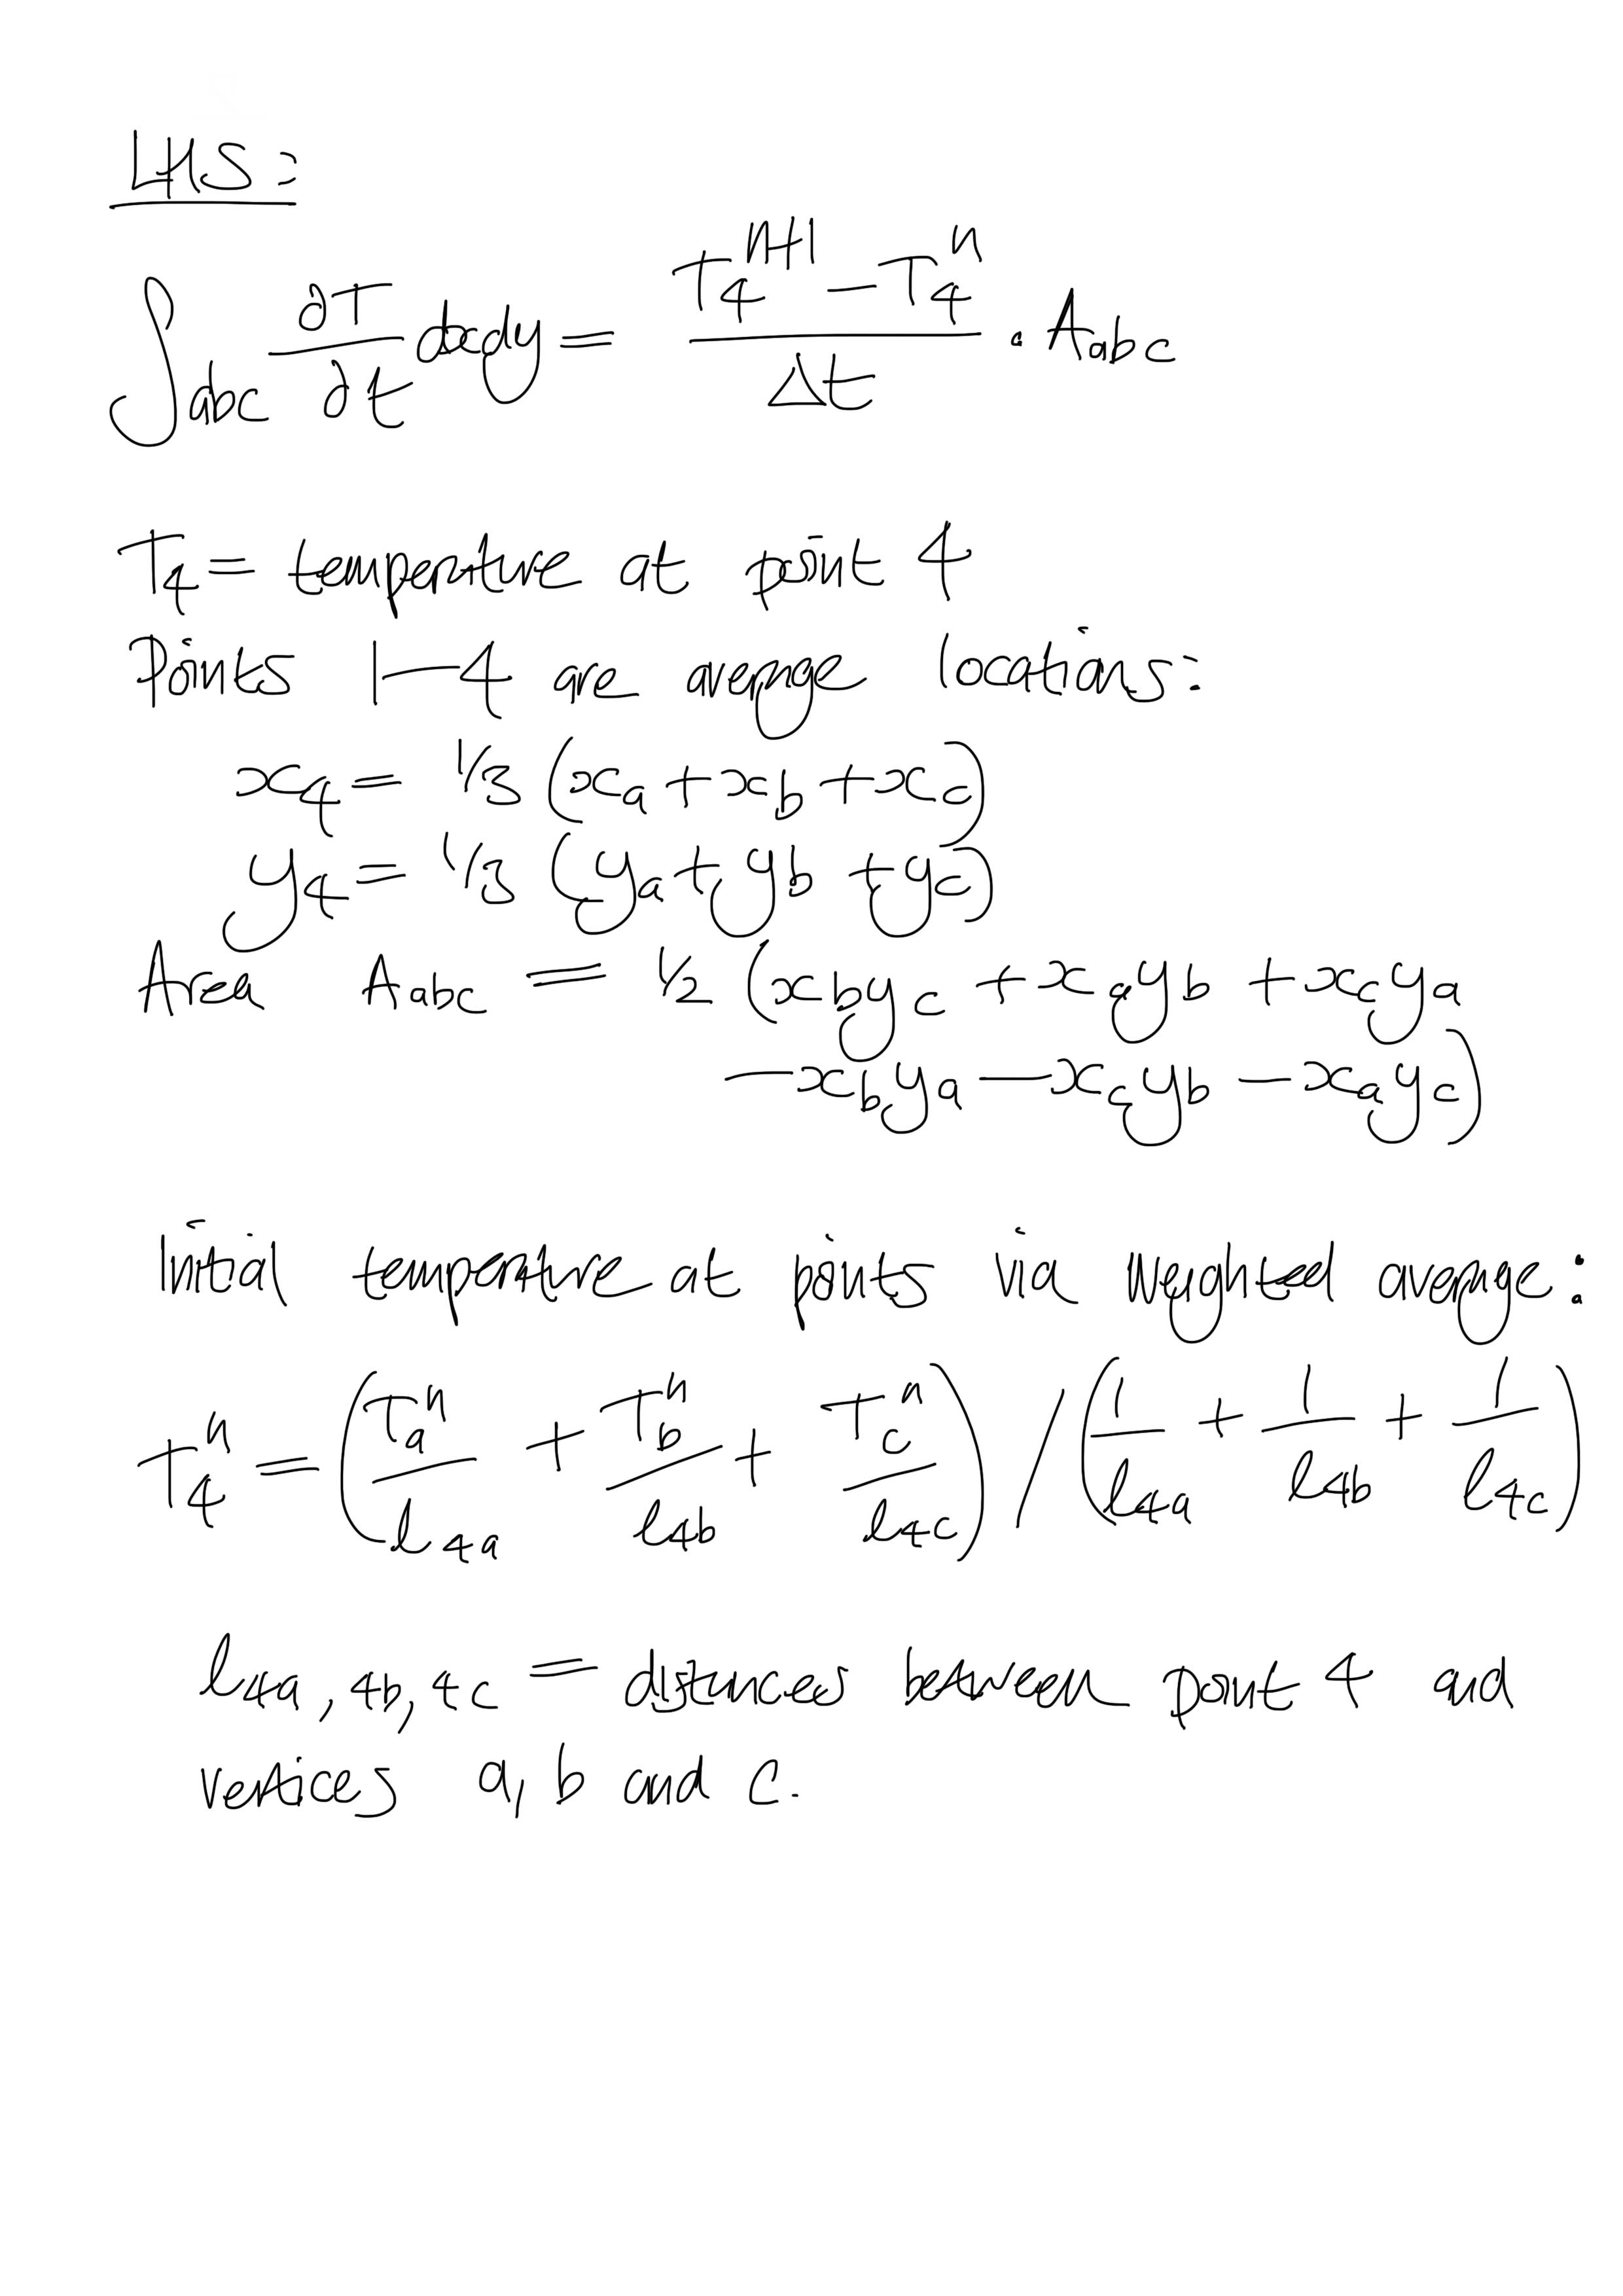 LHS:
∫abc ∂T/∂t dxdy = (T₄ⁿ⁺¹ − T₄ⁿ)/Δt · Aabc
T₄ = temperature at point 4
Points 1–4 are average locations:
x₄ = 1/3 (xa + xb + xc)
y₄ = 1/3 (ya + yb + yc)
Area Aabc = 1/2 (xbyc + xayb + xcya
− xbya − xcyb − xayc)
Initial temperature at points via weighted average:
T₄ⁿ = (Taⁿ/l4a + Tbⁿ/l4b + Tcⁿ/l4c) / (1/l4a + 1/l4b + 1/l4c)
l4a, 4b, 4c = distances between point 4 and
vertices a, b and c.